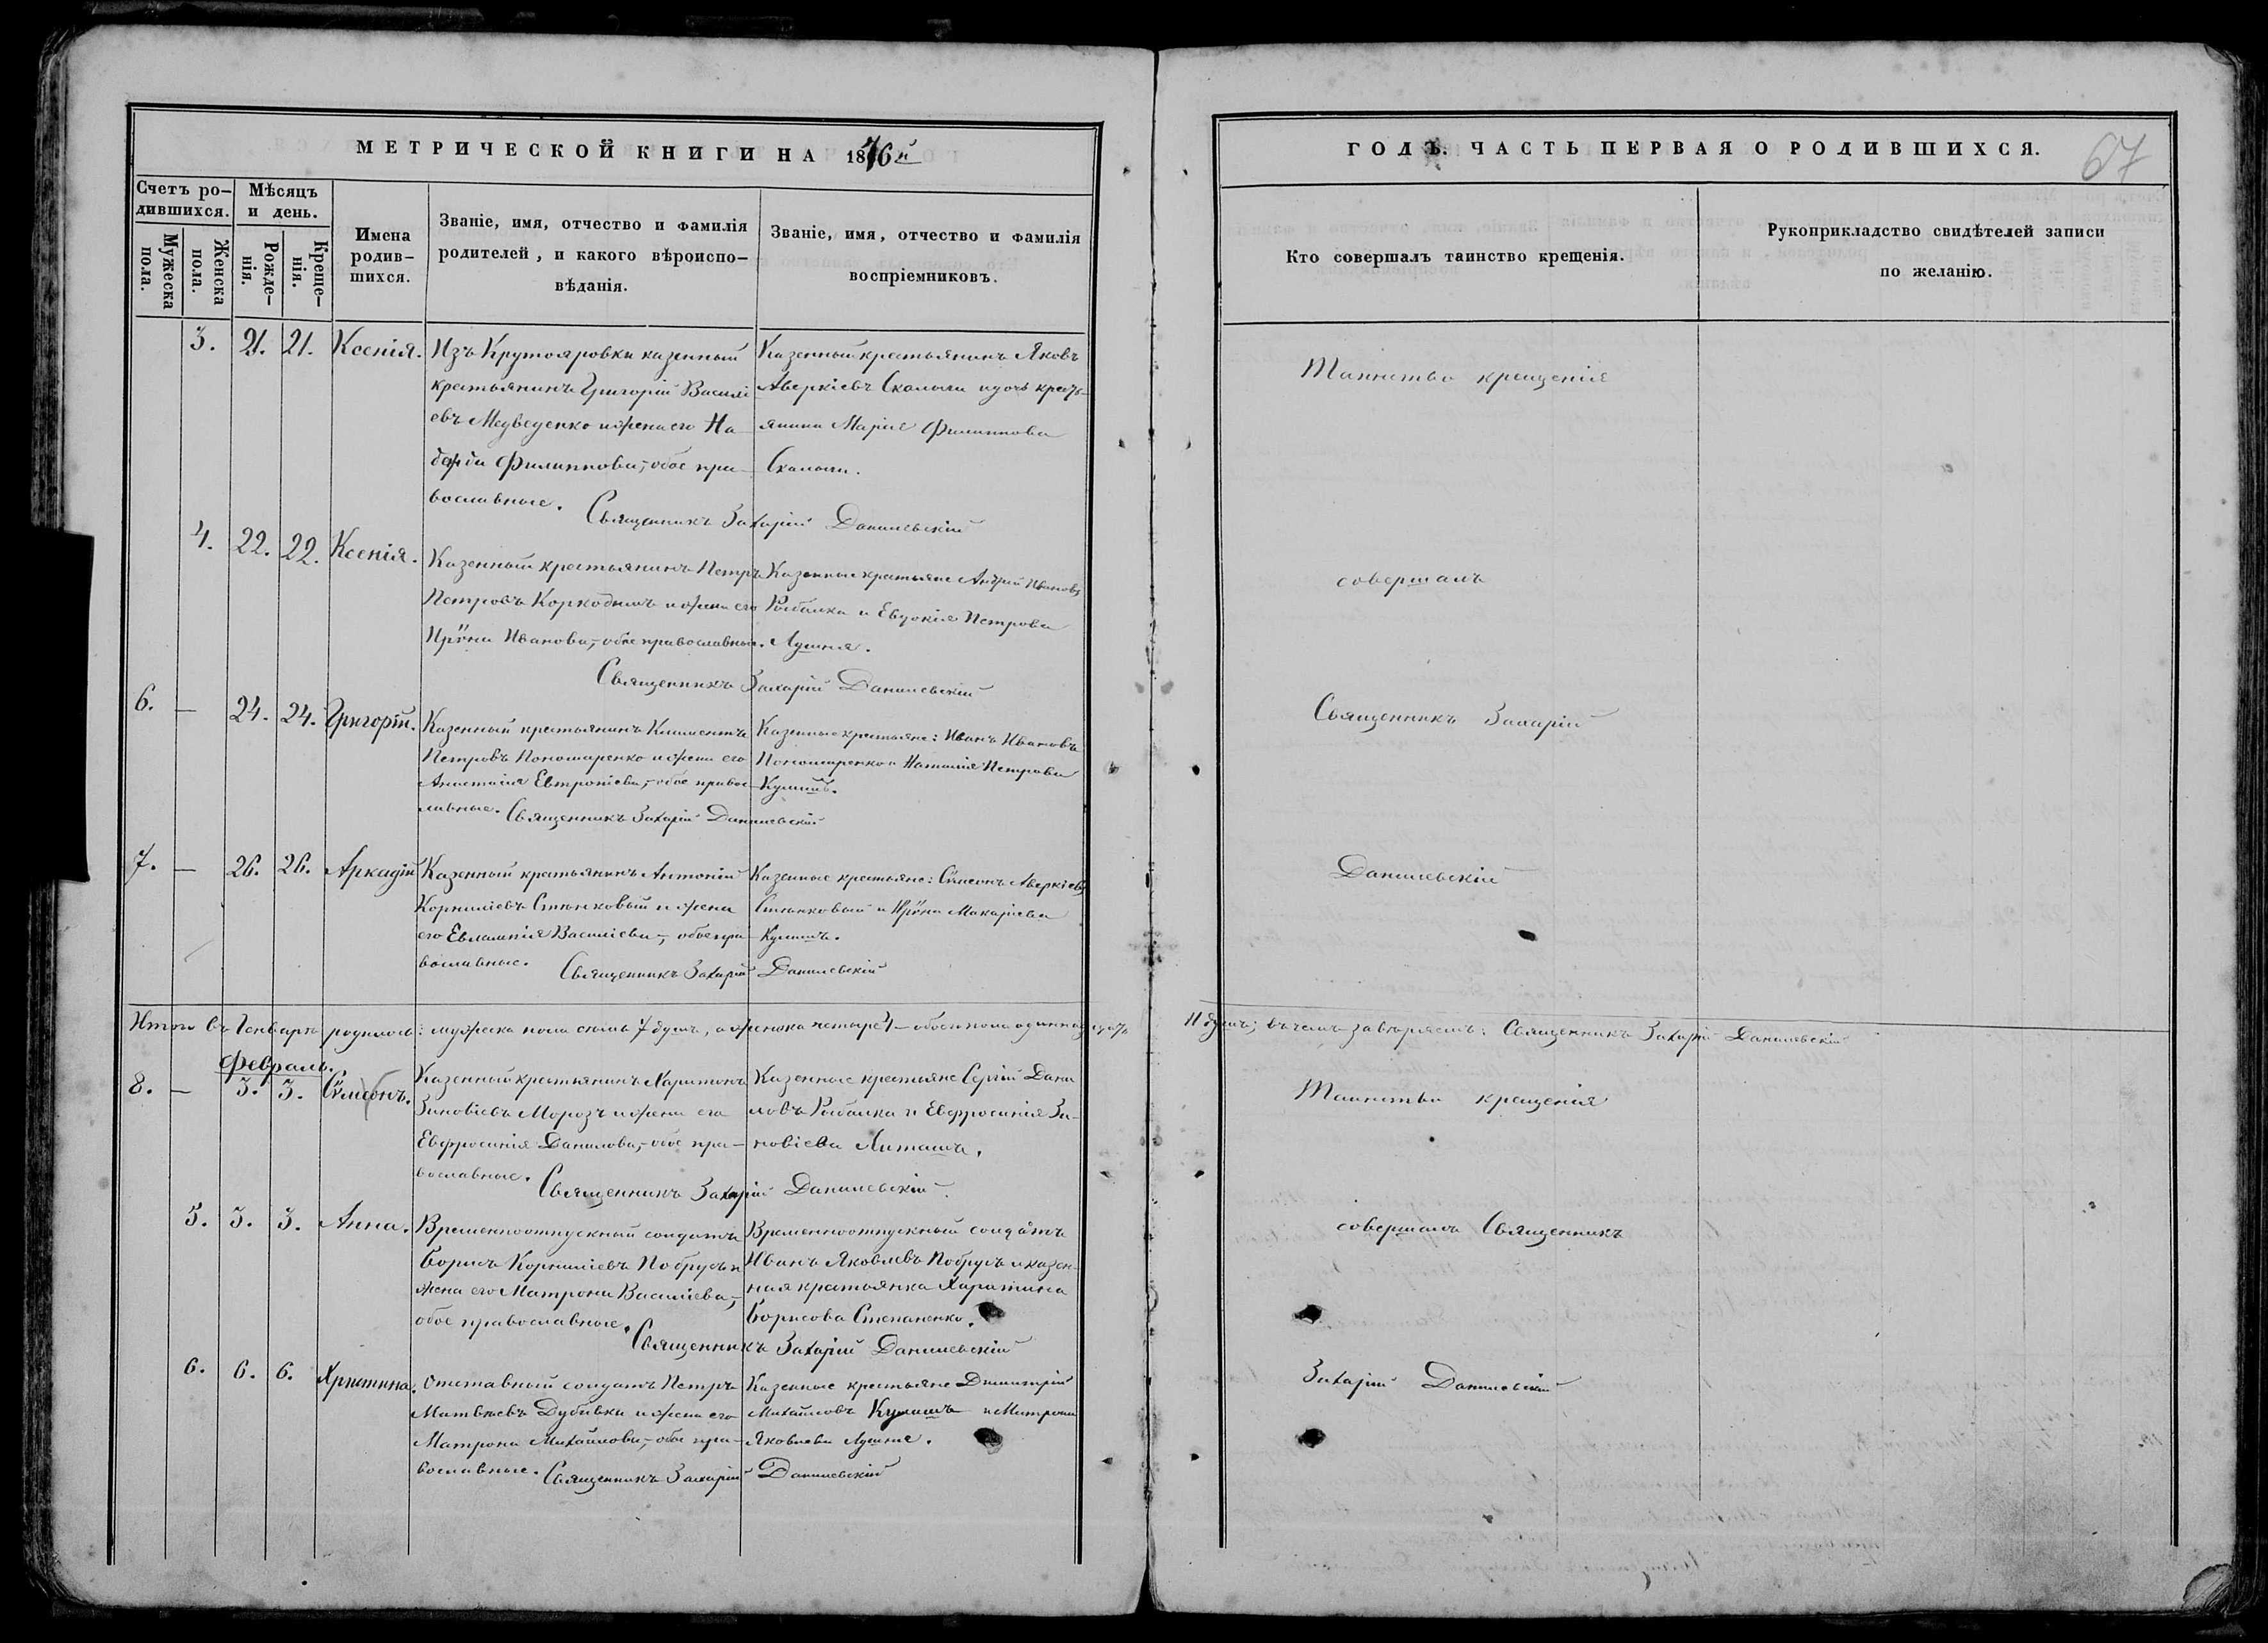 МЕТРИЧЕСКОЙ КНИГИ НА 1876й
ГОДЪ. ЧАСТЬ ПЕРВАЯ О РОДИВШИХСЯ.
67
Счетъ ро-
дившихся.
Мужеска
пола.
Женска
пола.
Мѣсяцъ
и день.
Рожде-
нія.
Креще-
нія.
Имена
родив-
шихся.
Званіе, имя, отчество и фамилія
родителей, и какого вѣроиспо-
вѣданія.
Званіе, имя, отчество и фамилія
воспріемниковъ.
Кто совершалъ таинство крещенія.
Рукоприкладство свидѣтелей записи
по желанію.
3. 21. 21. Ксенія.
Изъ Крутояровки казенный
крестьянинъ Григорій Василі
евъ Медведенко и жена его
Филиппова,- обое пра-
вославные.
Казенный крестьянинъ Яковъ
Аверкіевъ и дочь кресть-
янина Марія Филиппова
Священникъ Захарій Данилевскій
4. 22. 22. Ксенія.
Казенный крестьянинъ Петръ
Петровъ Коркодымъ и жена его
Ирѵна Иванова,- обое православные.
Казенные крестьяне Андрей Ивановъ
Рыбалка и Евдокія Петрова
Лушня.
Священникъ Захарій Данилевскій
6. — 24. 24. Григорій.
Казенный крестьянинъ Климентъ
Петровъ Пономаренко и жена его
Анастасія Евтропіева,- обое правос-
лавные.
Казенные крестьяне: Иванъ Ивановъ
Пономаренко и Наталія Петрова
Кулишъ.
Священникъ Захарій Данилевскій
7. — 26. 26. Аркадій
Казенный крестьянинъ Антоній
Корниліевъ Стынковый и жена
его Евлампія Василіева,- обое пра-
вославные.
Казенные крестьяне: Сѵмеонъ Аверкіевъ
Стынковый и Ирѵна Макаріева
Кулишъ.
Священникъ Захарій Данилевскій
Итого въ Генварѣ родилось: мужеска пола семь 7 душъ, а женска четыре 4 — обоего пола одиннадцать
11 душъ; въ чемъ завѣряемъ: Священникъ Захарій Данилевскій
Февраль.
8. — 3. 3. Сѵмеонъ.
Казенный крестьянинъ Харитонъ
Зиновіевъ Морозъ и жена его
Евфросинія Данилова,- обое пра-
вославные.
Казенные крестьяне Сергій Дани
ловъ Рыбалка и Евфросинія Зи-
новіева
Священникъ Захарій Данилевскій
5. 3. 3. Анна.
Временноотпускный солдатъ
Борисъ Корниліевъ Побрусъ и
жена его Матрона Василіева,-
обое православные.
Временноотпускный солдатъ
Иванъ Яковлевъ Побрусъ и казен-
ная крестьянка Харитина
Борисова Степаненко.
Священникъ Захарій Данилевскій
6. 6. 6. Христина.
Отставный солдатъ Петръ
Матвѣевъ Дубивка и жена его
Матрона Михайлова,- обое пра-
вославные.
Казенные крестьяне Димитрій
Михайловъ Кулишъ и Матрона
Яковлева Лушня.
Священникъ Захарій Данилевскій
Таинство крещенія
совершалъ
Священникъ Захарій
Данилевскій
Таинство крещенія
совершалъ Священникъ
Захарій Данилевскій